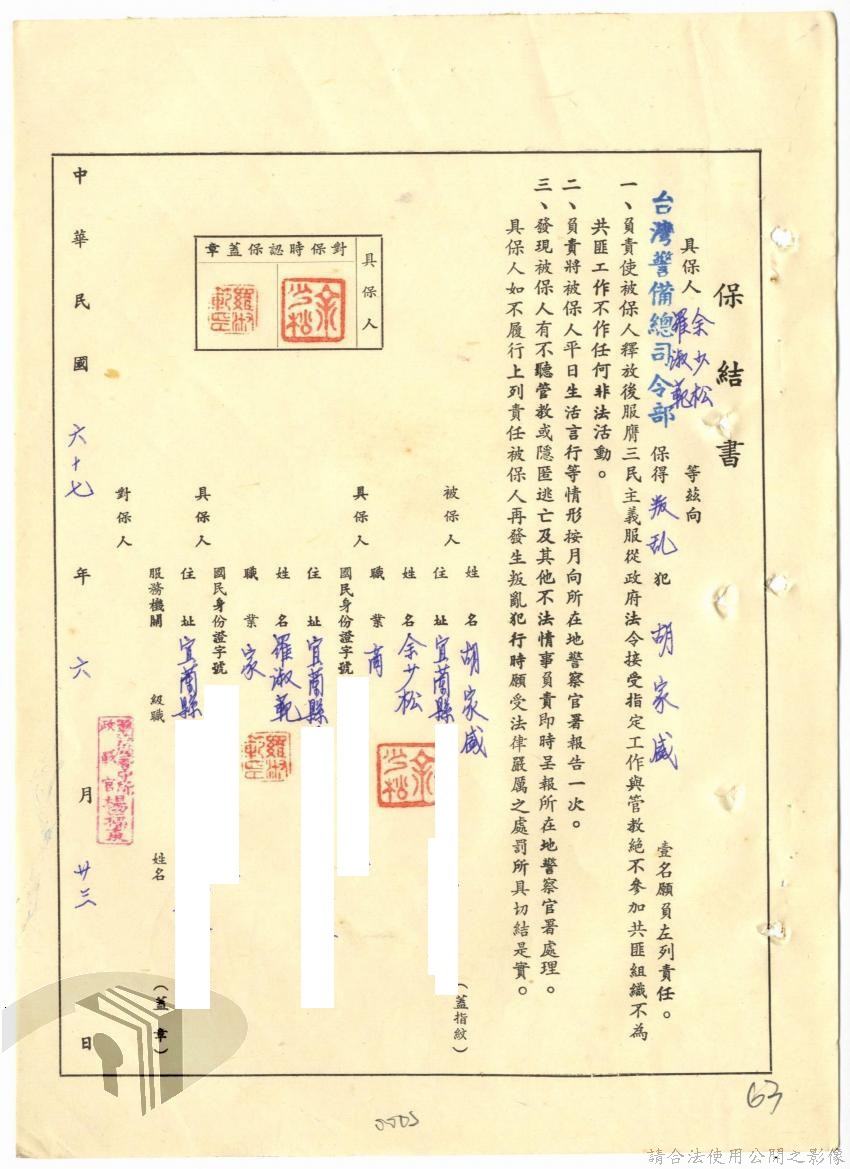 保結書
具保人 余少松 羅淑範 等茲向
台灣警備總司令部 保得 叛乱 犯 胡家威 壹名願負左列責任。
一、負責使被保人釋放後服膺三民主義服從政府法令接受指定工作與管教絕不參加共匪組織不為
共匪工作不作任何非法活動。
二、負責將被保人平日生活言行等情形按月向所在地警察官署報告一次。
三、發現被保人有不聽管教或隱匿逃亡及其他不法情事負責即時呈報所在地警察官署處理。
具保人如不履行上列責任被保人再發生叛亂犯行時願受法律嚴厲之處罰所具切結是實。
被保人 姓名 胡家威 (蓋指紋)
住址 宜蘭縣
具保人 姓名 余少松
職業 商
余少松
國民身份證字號
住址 宜蘭縣
具保人 姓名 羅淑範
職業 家
羅淑範
國民身份證字號
住址 宜蘭縣
對保人 服務機關 級職 姓名 (蓋章)
具保人
對保時認保蓋章
余少松
羅淑範
中華民國 六十七 年 六 月 廿三 日
63
請合法使用公開之影像